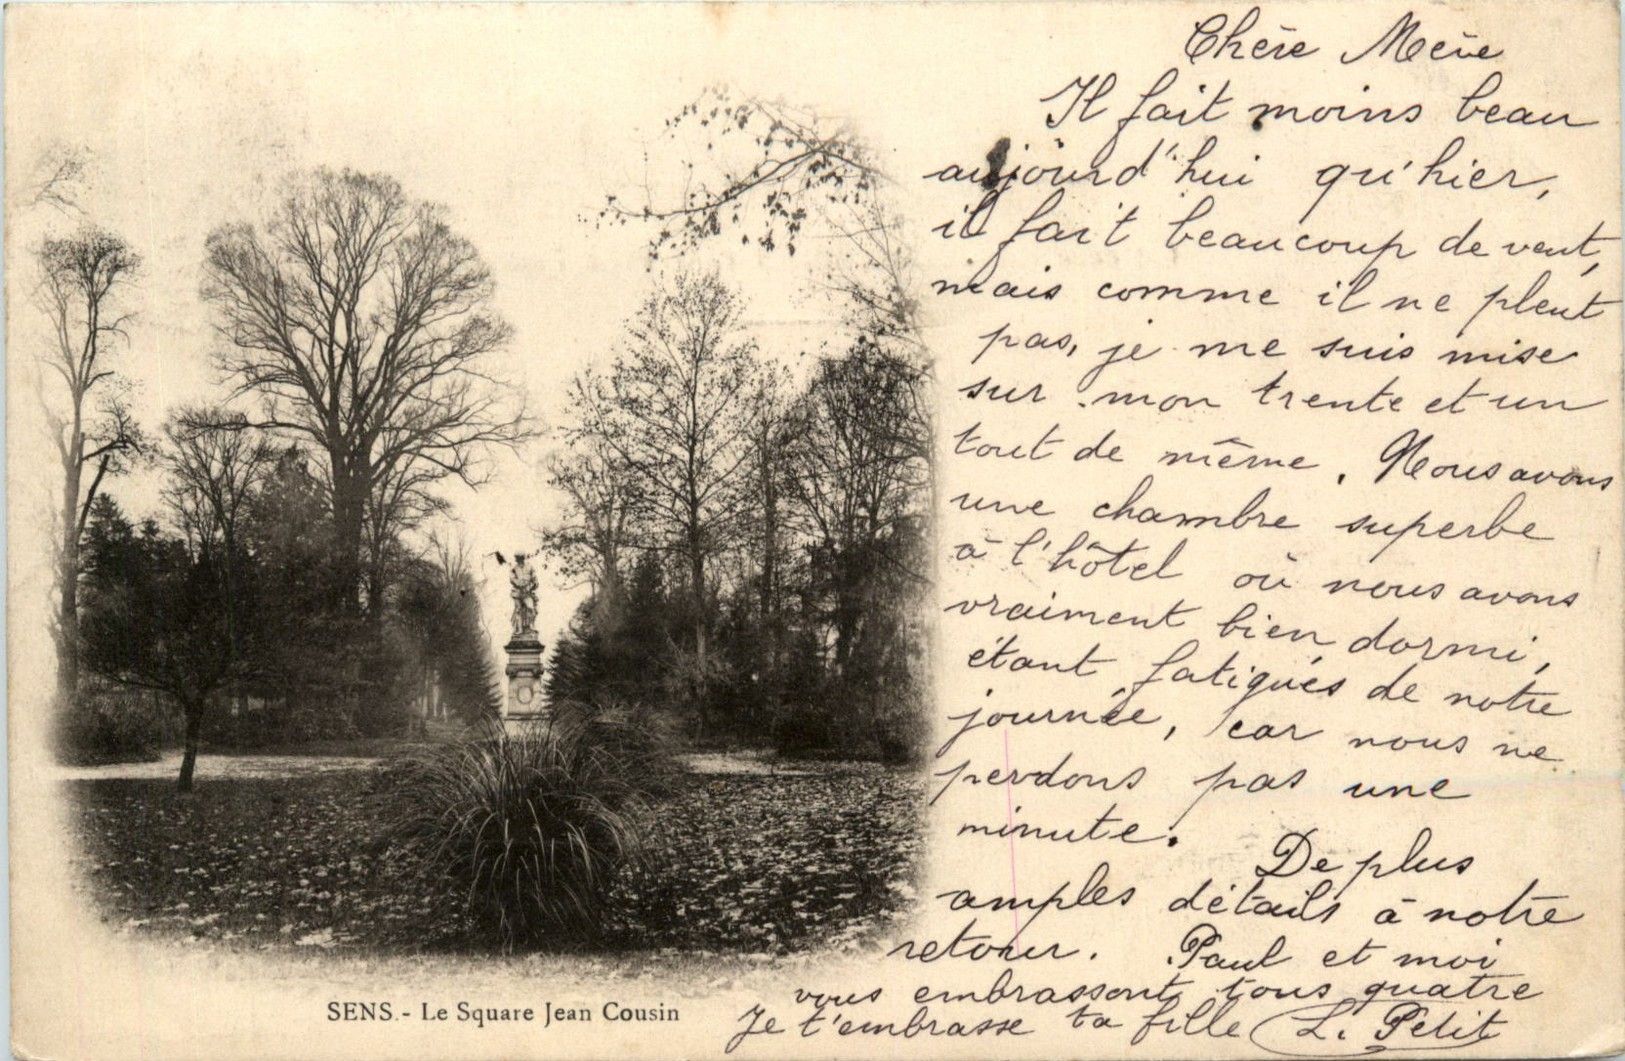 Chère Mère
Il fait moins beau
aujourd'hui qu'hier,
il fait beaucoup de vent,
mais comme il ne pleut
pas, je me suis mise
sur mon trente et un
tout de même. Nous avons
une chambre superbe
à l'hôtel où nous avons
vraiment bien dormi,
étant fatigués de notre
journée, car nous ne
perdons pas une
minute.
De plus
amples détails à notre
retour. Paul et moi
vous embrassont tous quatre
Je t'embrasse ta fille L. Petit
SENS.- Le Square Jean Cousin